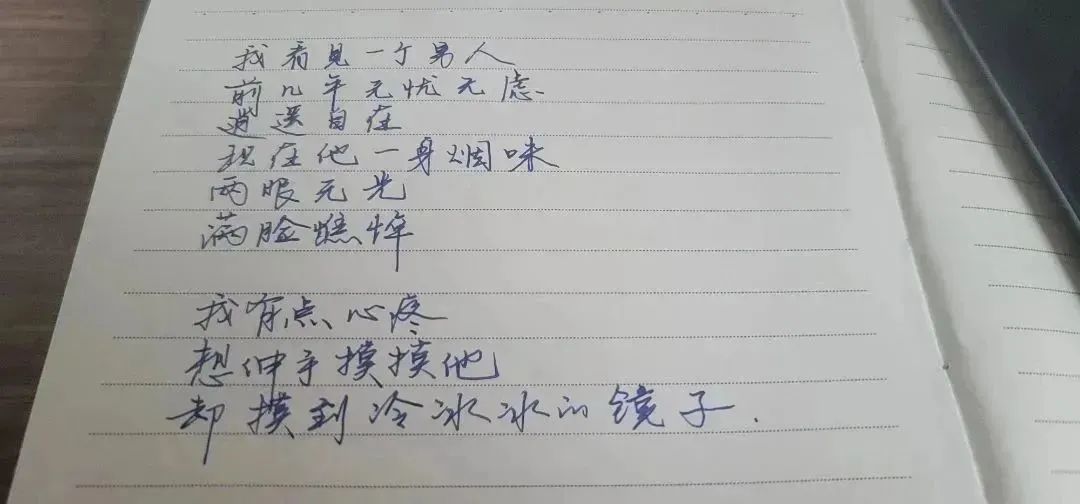 我看见一个男人
前几年无忧无虑
逍遥自在
现在他一身烟味
两眼无光
满脸憔悴
我有点心疼
想伸手摸摸他
却摸到冷冰冰的镜子.